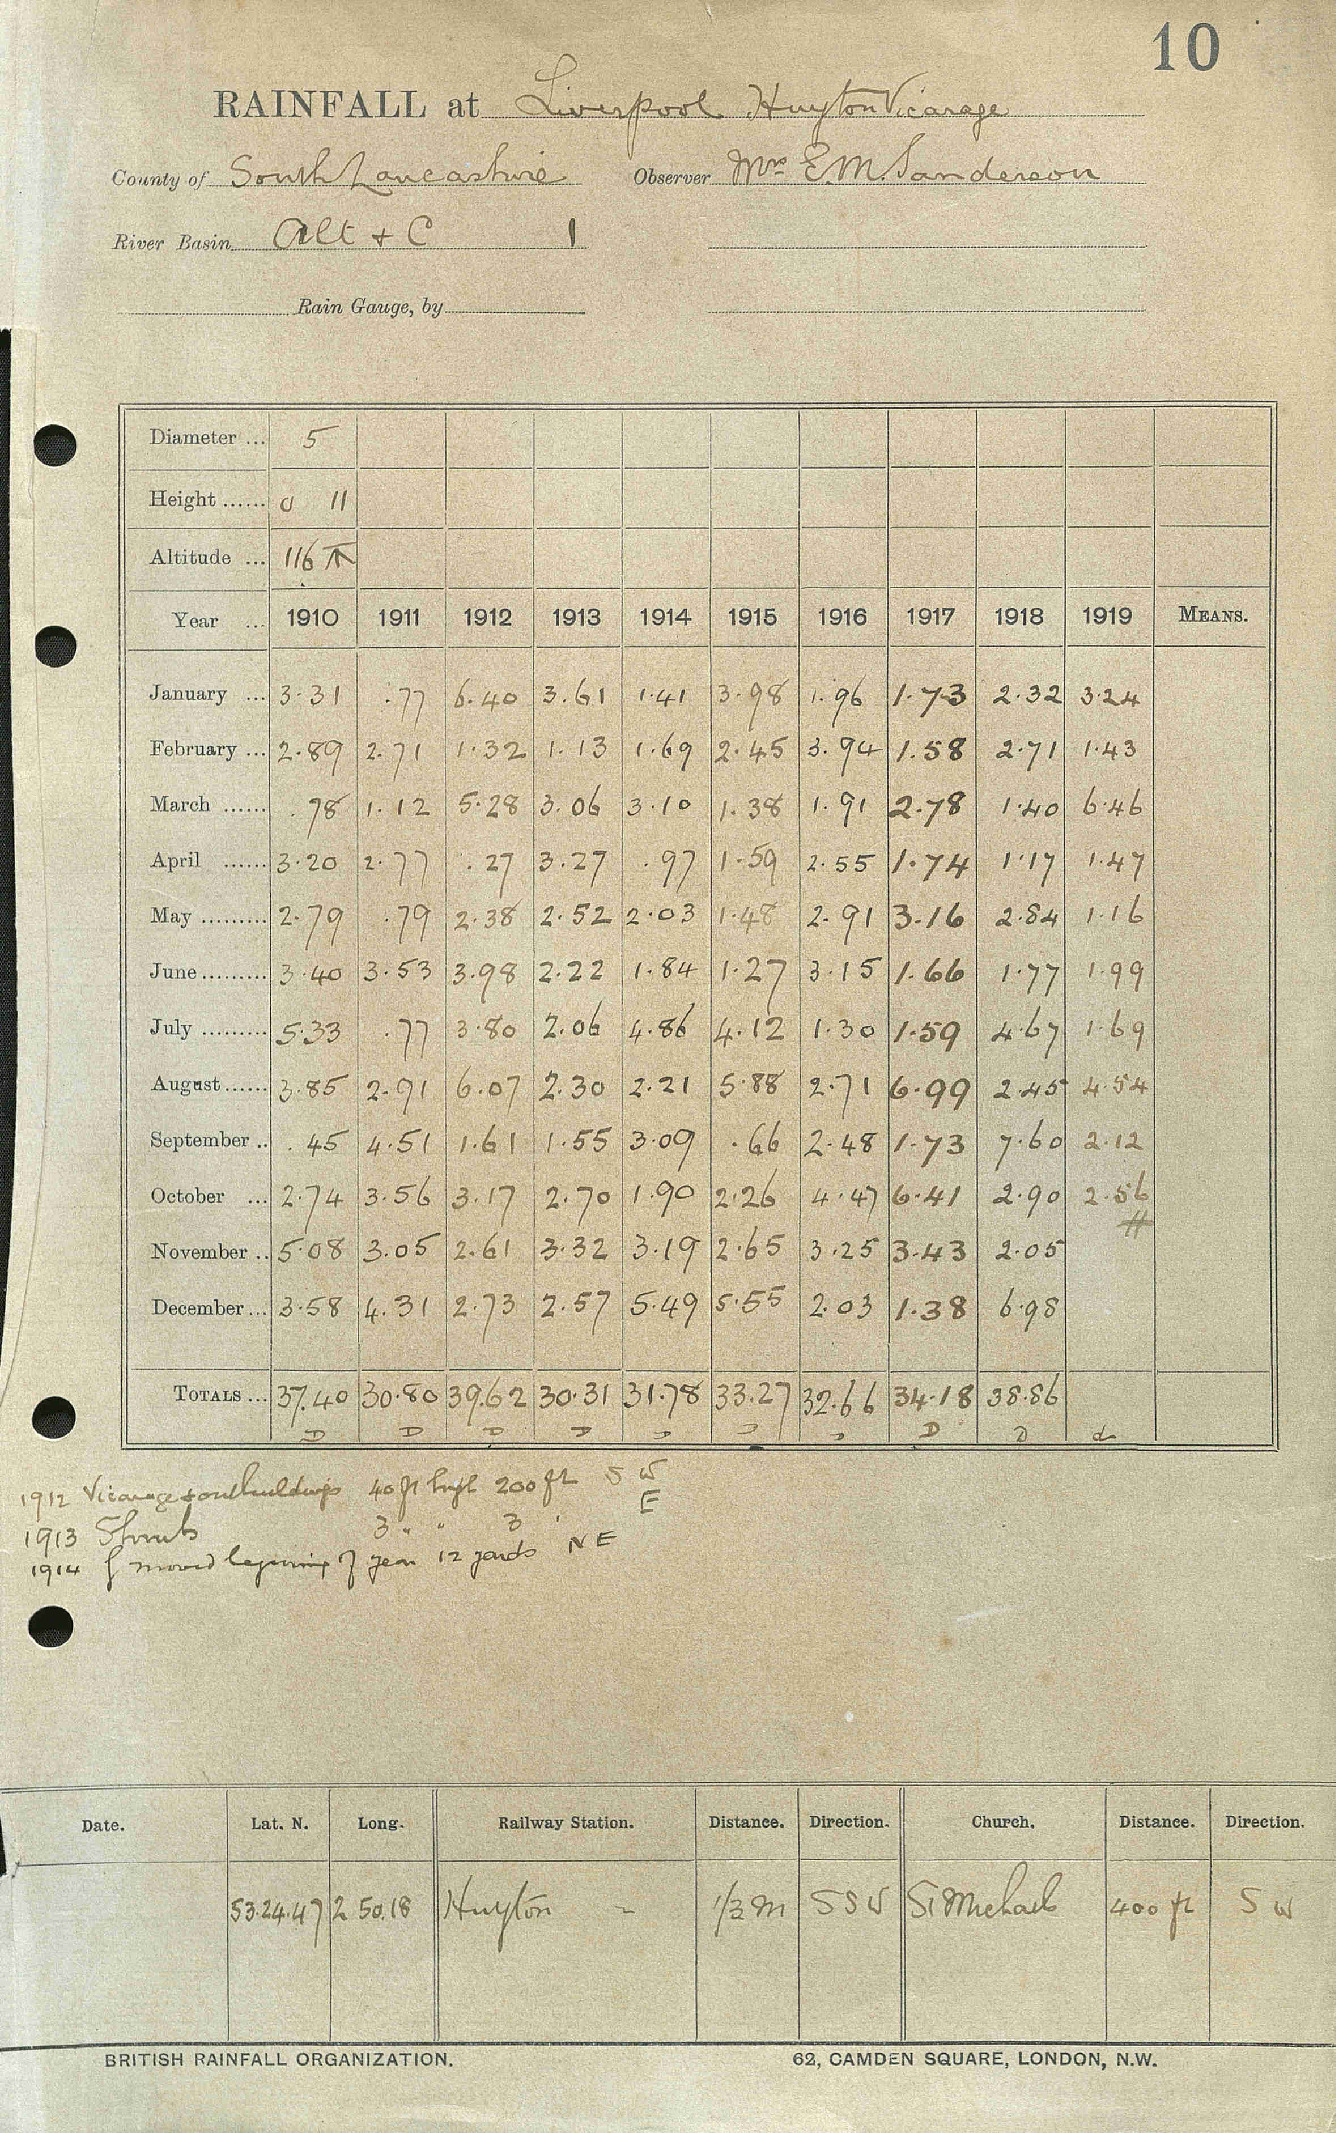 10
RAINFALL at Liverpool Huyton Vicarage
County of South Lancashire Observer Mrs E.M. Sanderson
River Basin Alt + C 1
Rain Gauge, by
Diameter ... 5
Height ...... 0 11
Altitude ... 116
Year ... 1910 1911 1912 1913 1914 1915 1916 1917 1918 1919 MEANS.
January ... 3.31 .77 6.40 3.61 1.41 3.98 1.96 1.73 2.32 3.24
February ... 2.89 2.71 1.32 1.13 1.69 2.45 3.94 1.58 2.71 1.43
March ...... .78 1.12 5.28 3.06 3.10 1.38 1.91 2.78 1.40 6.46
April ...... 3.20 2.77 .27 3.27 .97 1.59 2.55 1.74 1.17 1.47
May ......... 2.79 .79 2.38 2.52 2.03 1.48 2.91 3.16 2.84 1.16
June ......... 3.40 3.53 3.98 2.22 1.84 1.27 3.15 1.66 1.77 1.99
July ......... 5.33 .77 3.80 2.06 4.86 4.12 1.30 1.59 4.67 1.69
August ...... 3.85 2.91 6.07 2.30 2.21 5.88 2.71 6.99 2.45 4.54
September .. .45 4.51 1.61 1.55 3.09 .66 2.48 1.73 7.60 2.12
October ... 2.74 3.56 3.17 2.70 1.90 2.26 4.47 6.41 2.90 2.56
November .. 5.08 3.05 2.61 3.32 3.19 2.65 3.25 3.43 2.05
December ... 3.58 4.31 2.73 2.57 5.49 5.55 2.03 1.38 6.98
TOTALS ... 37.40 30.80 39.62 30.31 31.78 33.27 32.66 34.18 38.86
D D D D D D D D D d
1912 Vicarage & outbuildings 40 ft high 200 ft SW
1913 Shrubs 3 " " 3 ' E
1914 moved beginning of year 12 yards NE
Date. Lat. N. Long. Railway Station. Distance. Direction. Church. Distance. Direction.
53.24.47 2 50.18 Huyton - 1/3 m SSW St Michael 400 ft SW
BRITISH RAINFALL ORGANIZATION. 62, CAMDEN SQUARE, LONDON, N.W.